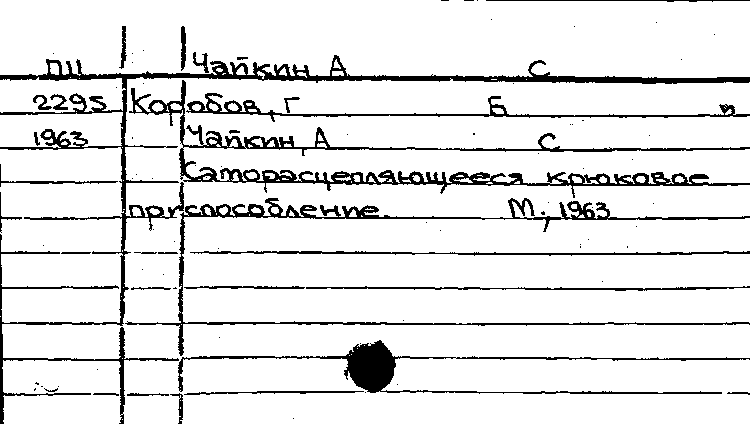 ПЦ Чапкин, А С
2295 Коробов, Г Б и
1963 Чапкин, А С
Саморасцепляющееся крюковое
приспособление. М., 1963